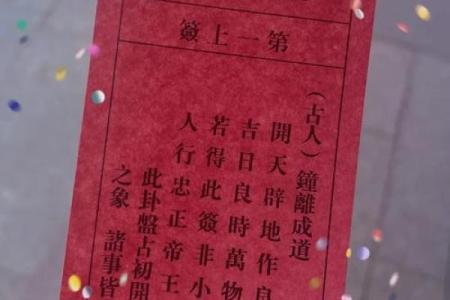 第一上簽
（古人）鐘離成道
開天辟地作良
吉日良時萬物
若得此簽非小
人行忠正帝王
此卦盤占初開
之象 諸事皆